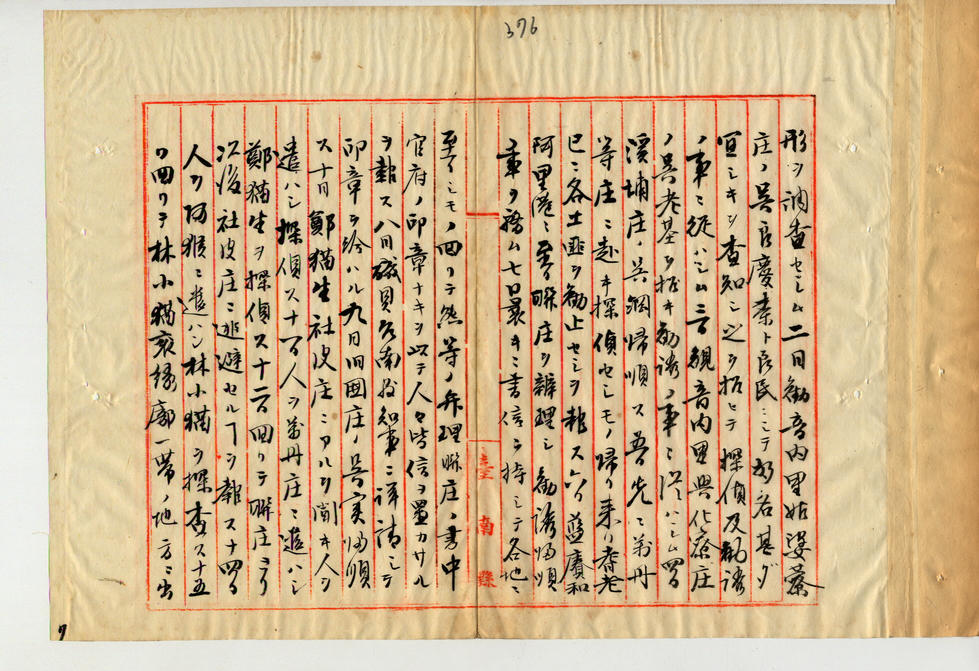 376
形ヲ調査セシム二日觀音內里姑婆藔
庄ノ吳良慶素ト良民ニシテ好名甚ダ
宜シキヲ査知シ之ヲ招ヒテ探偵及勸誘
ノ事ニ從ハシム三日觀音內里興化藔庄
ノ吳老基ヲ招キ勸誘ノ事ニ從ハシム四日
溪埔庄ノ吳鋼歸順ス吾先ニ萬丹
等庄ニ赴キ探偵セシモノ歸リ来リ耆老
已ニ各土匪ヲ勸止セシヲ報ス六日藍賡和
阿里港ニ至リ聯庄ヲ辨理シ勸誘歸順
ノ事ヲ務ム七日曩キニ書信ヲ持シテ各地ニ
臺南縣
至ラシモノ回リテ然等ノ弁理聯庄ノ書中
官府ノ印章ナキヲ以テ人々皆信ヲ置カサル
ヲ報ス八日磯貝台南縣知事ニ詳請シテ
印章ヲ給ハル九日旧囲庄ノ吳実歸順
ス十日鄭猫生社皮庄ニアルヲ聞キ人ヲ
遣ハシ探偵ス十一日人ヲ萬丹庄ニ遣ハシ
鄭猫生ヲ探偵ス十二日回リテ聯庄ヨリ
以後社皮庄ニ逃避セルヿヲ報ス十四日
人ヲ阿猴ニ遣ハシ林小猫ヲ探査ス十五
日回リテ林小猫家緣廓一帶ノ地方ニ出